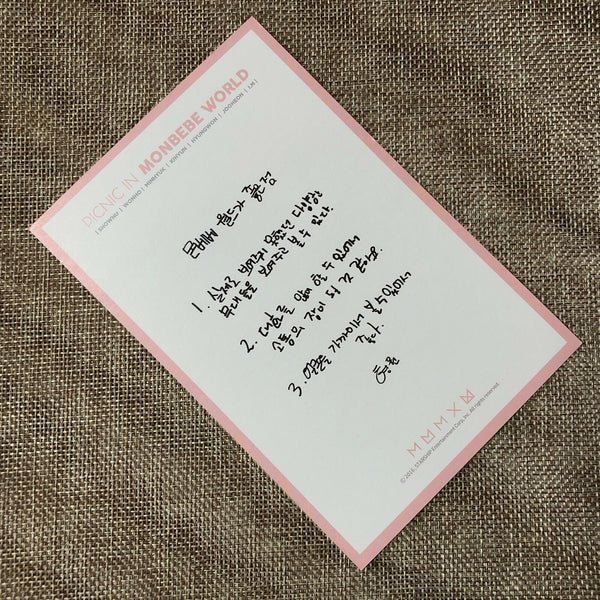 PICNIC IN MONBEBE WORLD
| SHOWNU | WONHO | MINHYUK | KIHYUN | HYUNGWON | JOOHEON | I.M |
몬베베 월드가 좋은점
1. 실제로 보여주지 못했던 다양한
무대들을 보여주고 볼 수 있다.
2. 대화를 많이 할 수 있어서
소통의 장이 되 것 같아요.
3. 얼굴을 가까이서 볼 수 있어서
좋다.
형원
© 2016, STARSHIP Entertainment Corp, Inc. All rights reserved.